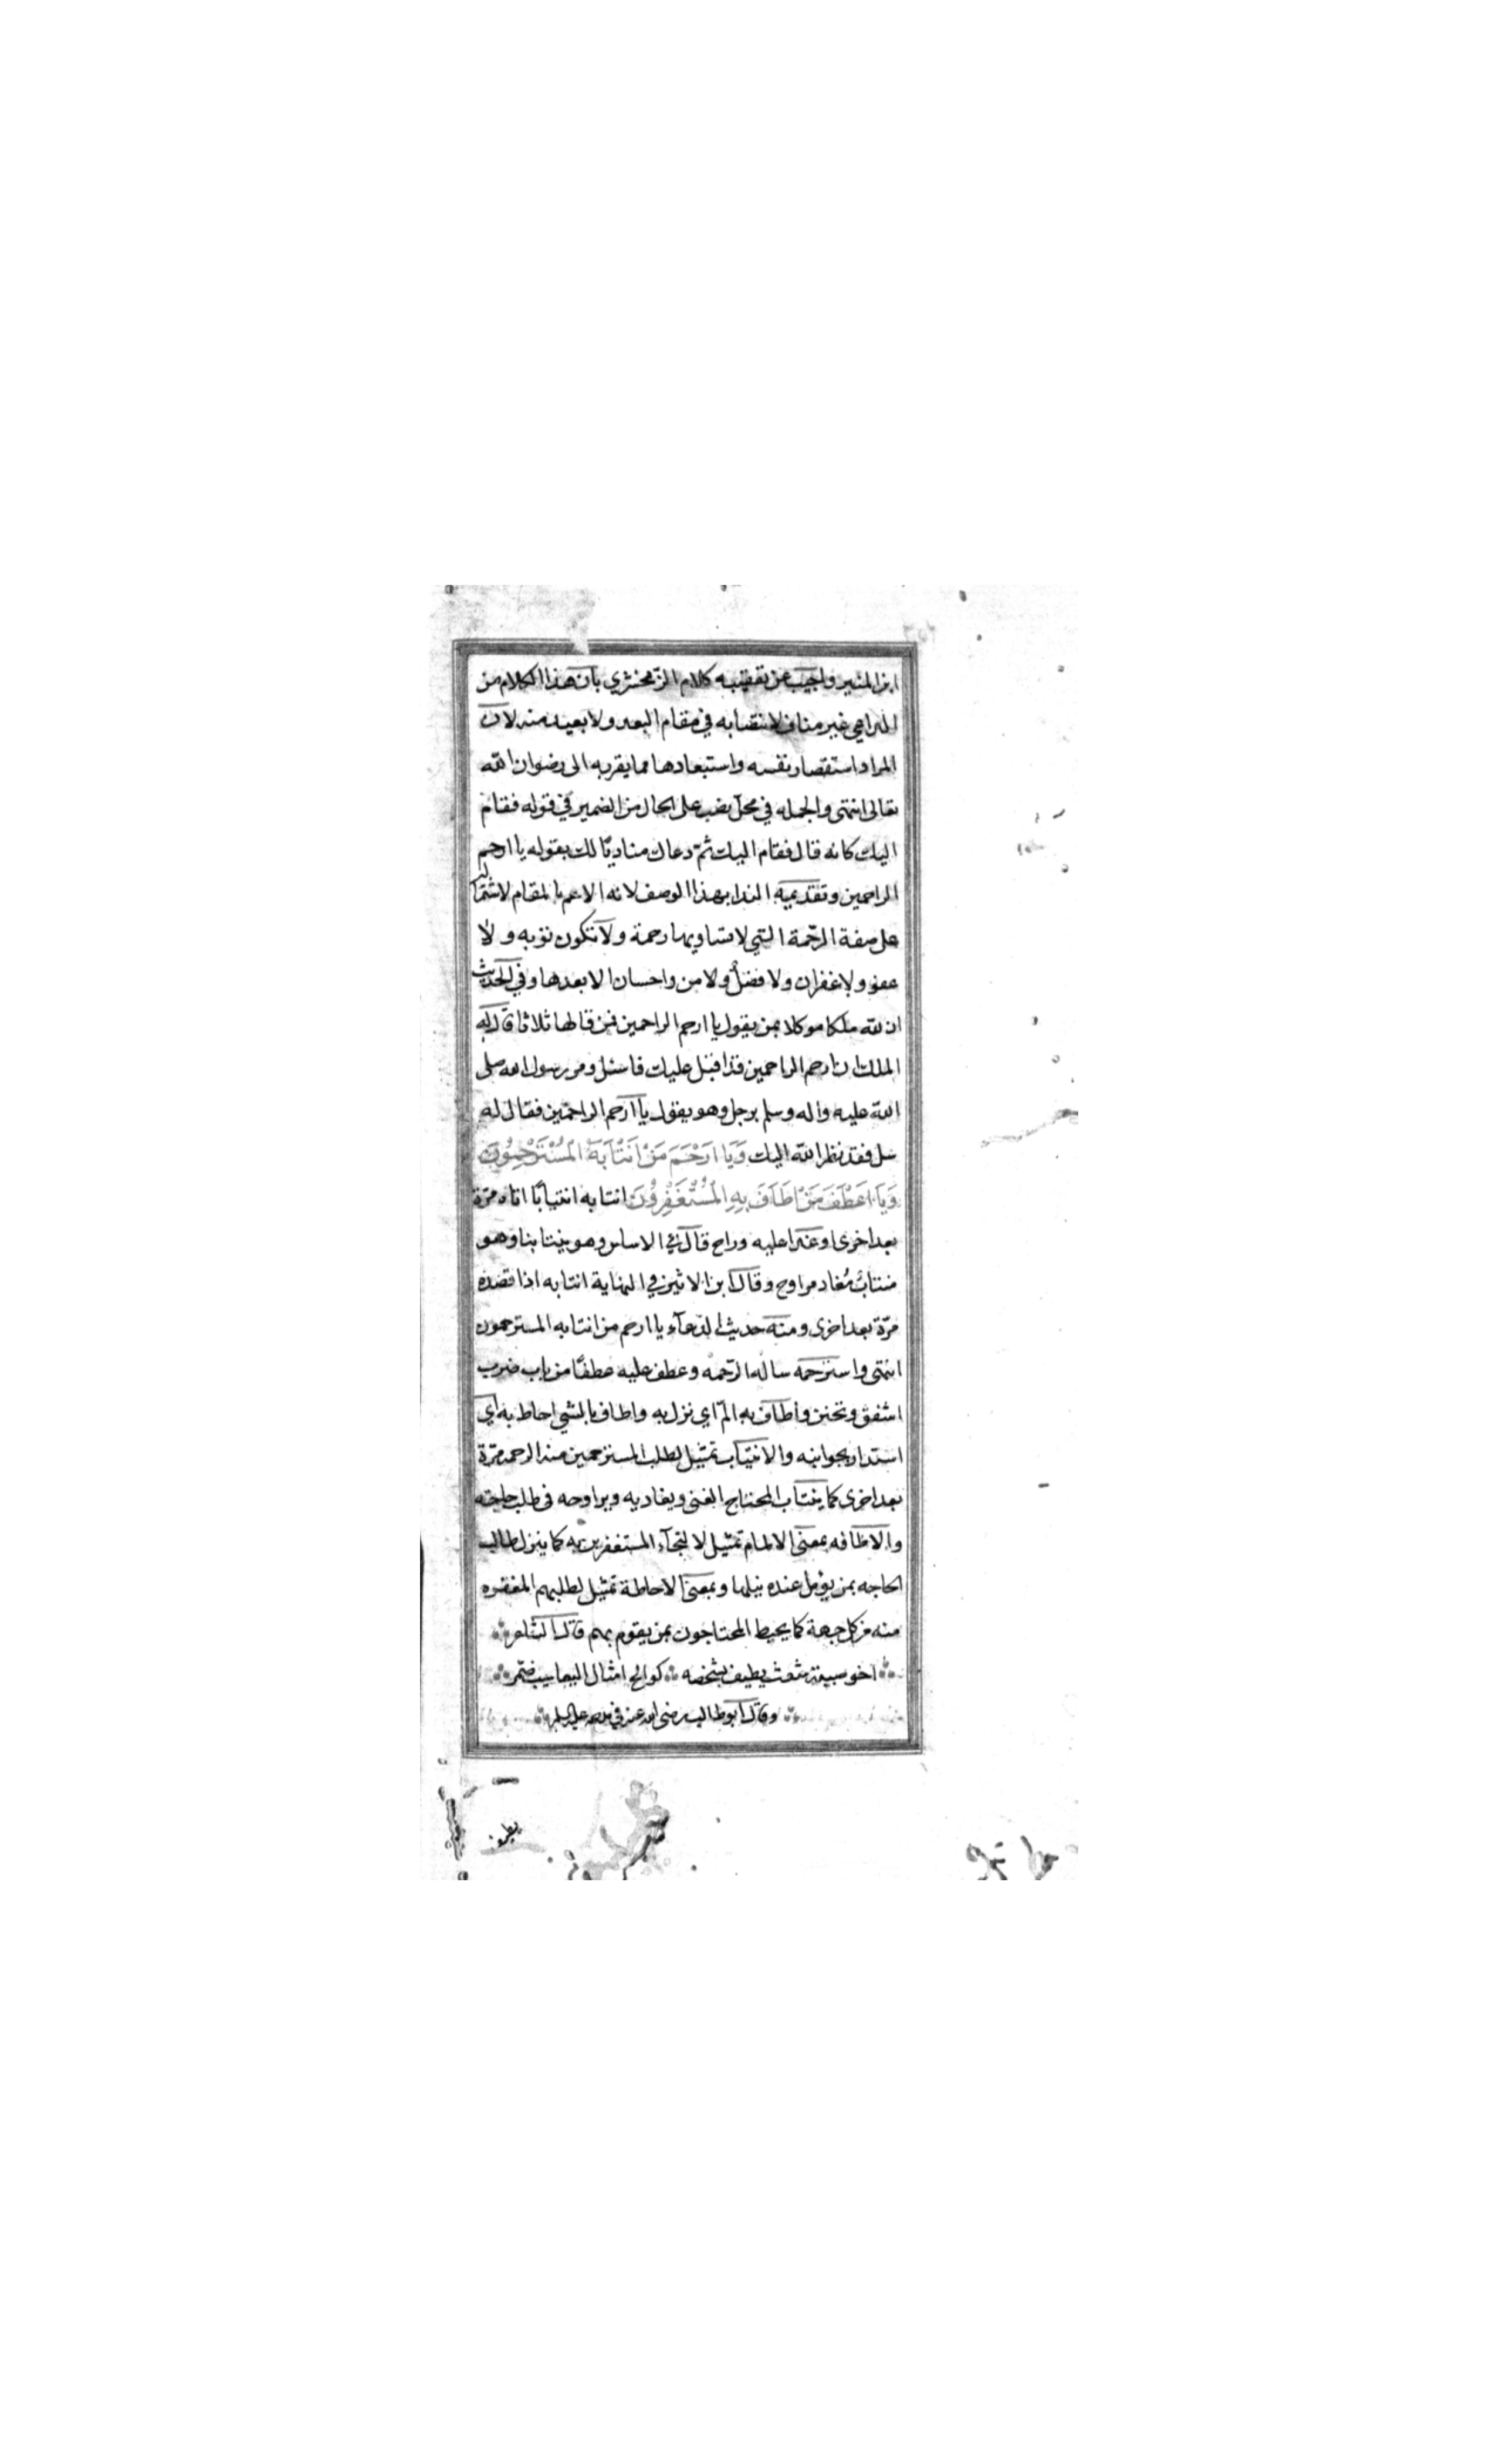 ابن المنير واجيب عن تعقيبه كلام الزمخشري بان هذا الكلام من
الداعي غير مناف لانتصابه في مقام البعد ولا بعيد منه لان
المراد استقصار نفسه واستبعادها مما يقربه الى رضوان الله
تعالى انتهى والجمله في محل نصب على الحال من الضمير في قوله فقام
اليك كانه قال فقام اليك ثمّ دعاك مناديًا لك بقوله يا ارحم
الراحمين وتقديمه الندا بهذا الوصف لانه الاعم بالمقام لاشتماله
على صفة الرحّمة التي لا تساويها رحمة ولا تكون توبه ولا
عفو ولا غفران ولا فضل ولا من واحسان الا بعدها وفي الحديث
ان لله ملكا موكلا بمن يقول يا ارحم الراحمين فمن قالها ثلاثا قال له
الملك ان ارحم الراحمين قد اقبل عليك فاسئل ومر رسول الله صلى
الله عليه واله وسلم برجل وهو يقول يا ارحم الراحمين فقال له
سل فقد نظر الله اليك وَيَا ارْحَمَ مَنْ انْتَابَهُ المُسْتَرْحِمُونَ
وَيَا اَعْطَفَ مَنْ اَطَافَ بِهِ المُسْتَغْفِرُونَ انتابه انتيابًا اتاه مرّة
بعد اخرى وغدا عليه وراح قال في الاساس وهو ينتابنا وهو
منتابٌ مُغاد مراوح وقال ابن الاثير في النهاية انتابه اذا قصده
مرّة بعد اخرى ومنه حديث الدعآء يا ارحم من انتابه المسترحمون
انتهى واسترحمه ساله الرّحمه وعطف عليه عطفًا من باب ضرب
اشفق وتحنن واطاف به المّ اي نزل به واطاف بالشي احاط به اي
استدار بجوانبه والانتياب تمثيل لطلب المسترحمين منه الرحمه مرّة
بعد اخرى كما ينتاب المحتاج الغنى ويغاديه ويراوحه في طلب حاجته
والاطافه بمعنى الالمام تمثيل لالتجآء المستغفرين به كما ينزل طالب
الحاجه بمن يؤمل عنده نيلها وبمعنى الاحاطة تمثيل لطلبهم المغفره
منه من كل جهة كما يحيط المحتاجون بمن يقوم بهم قال الشاعر
اخو شعث يطيف بشخصه كوالح امثال اليعاسيب ضمّر
وقال ابو طالب رضى الله عنه في مدحه عليه السلم
يطيف